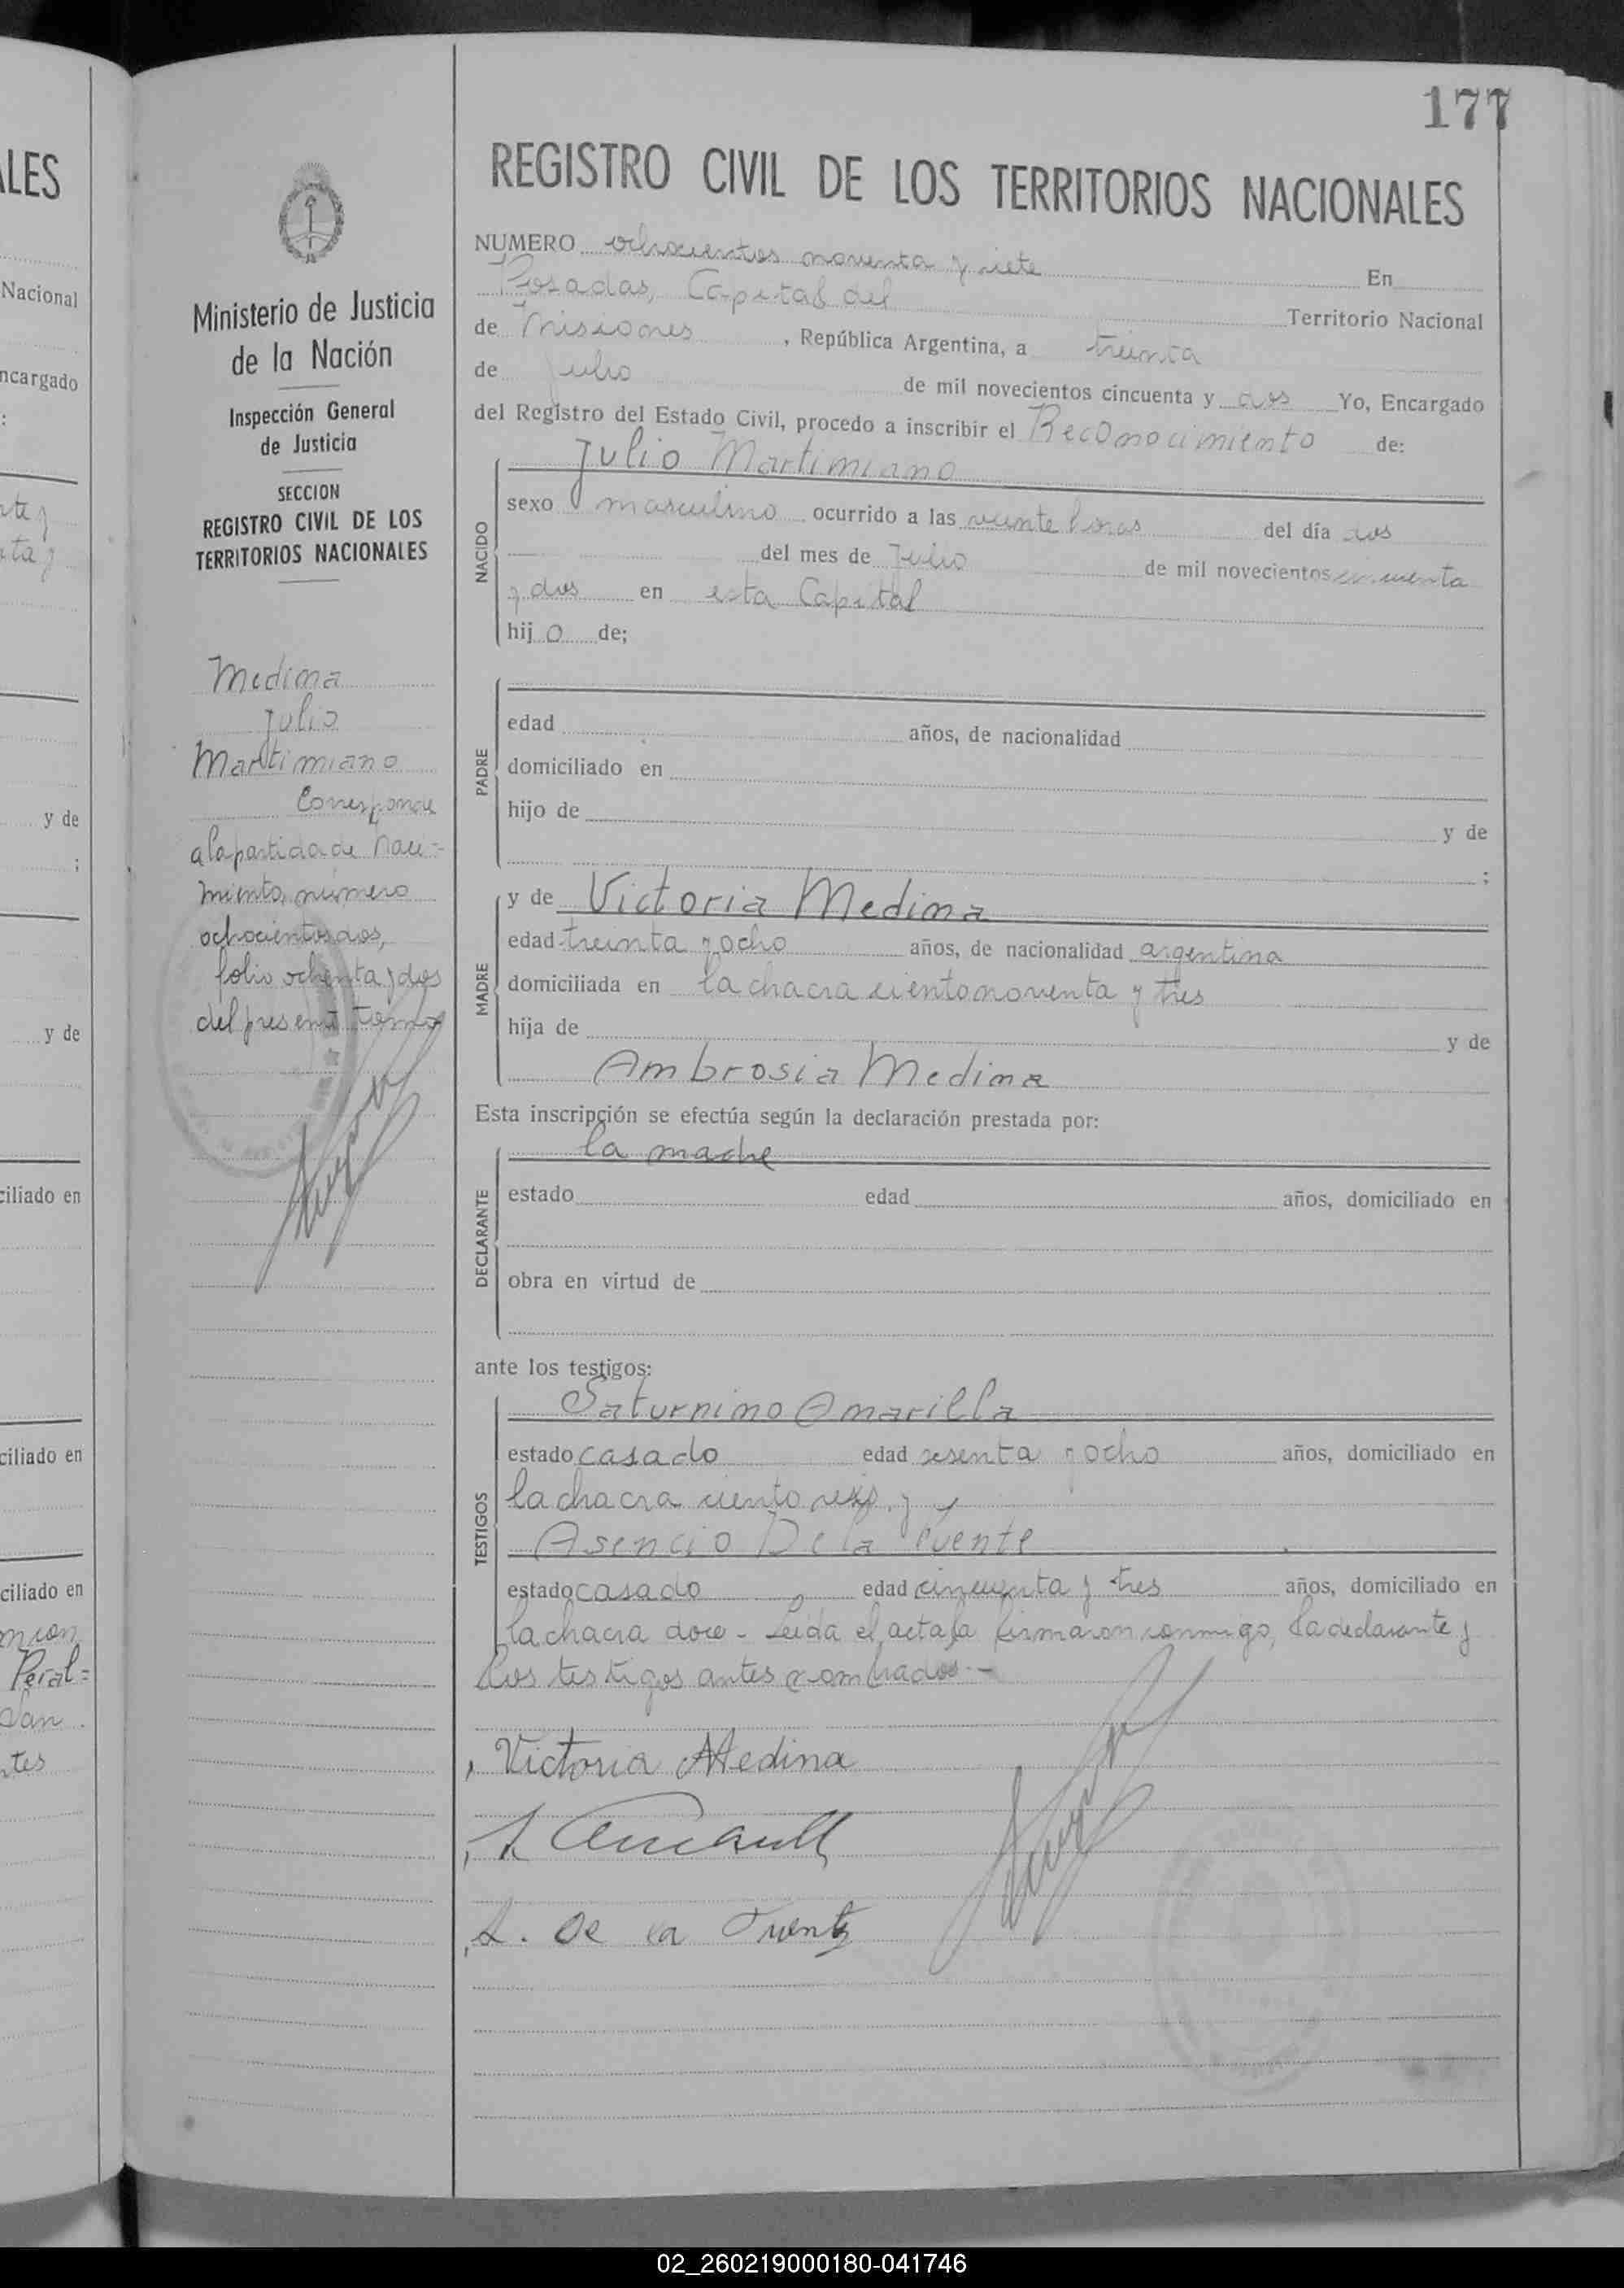 177
REGISTRO CIVIL DE LOS TERRITORIOS NACIONALES
NUMERO ochocientos noventa y siete En
Posadas, Capital del Territorio Nacional
de Misiones, República Argentina, a treinta
de Julio de mil novecientos cincuenta y dos Yo, Encargado
del Registro del Estado Civil, procedo a inscribir el Reconocimiento de:
NACIDO
Julio Martimiano
sexo masculino ocurrido a las veinte horas del día dos
del mes de Julio de mil novecientos cincuenta
y dos en esta Capital
hij o de;
PADRE
edad años, de nacionalidad
domiciliado en
hijo de y de
;
MADRE
y de Victoria Medina
edad treinta y ocho años, de nacionalidad argentina
domiciliada en la chacra ciento noventa y tres
hija de y de
Ambrosia Medina
Esta inscripción se efectúa según la declaración prestada por:
DECLARANTE
la madre
estado edad años, domiciliado en
obra en virtud de
ante los testigos:
TESTIGOS
Saturnino Amarilla
estado casado edad sesenta y ocho años, domiciliado en
la chacra ciento seis, y
Asencio De la Fuente
estado casado edad cincuenta y tres años, domiciliado en
la chacra doce - Leida el acta la firmaron conmigo, la declarante y
los testigos antes nombrados.-
Victoria Medina
A. De la Fuente
Ministerio de Justicia
de la Nación
Inspección General
de Justicia
SECCION
REGISTRO CIVIL DE LOS
TERRITORIOS NACIONALES
Medina
Julio
Martimiano
Corresponde
a la partida de Naci-
miento, número
ochocientos dos,
folio ochenta y dos
del presente tomo
LES
Nacional
ncargado
:
y de
;
y de
ciliado en
ciliado en
ciliado en
Peral=
San
ntes
02_260219000180-041746